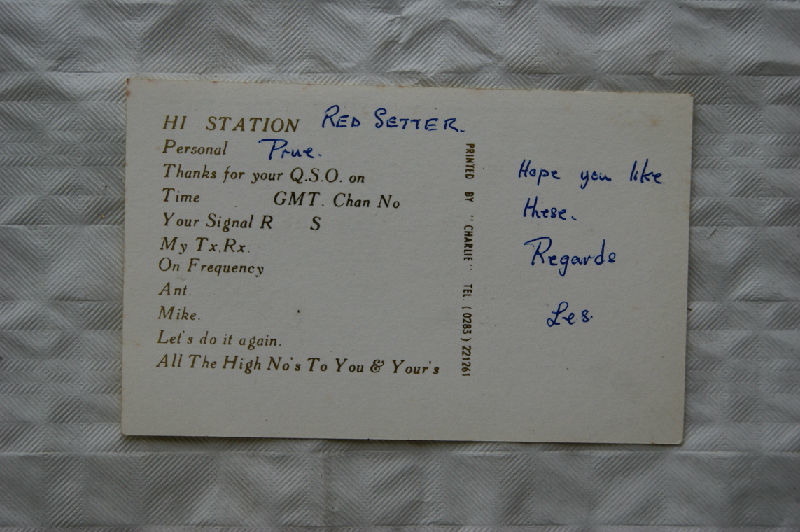 HI STATION RED SETTER.
Personal Prue.
Thanks for your Q.S.O. on
Time GMT. Chan No
Your Signal R S
My Tx.Rx.
On Frequency
Ant
Mike.
Let's do it again.
All The High No's To You & Your's
PRINTED BY "CHARLIE" TEL (0283) 221261
Hope you like
these.
Regards
Les.